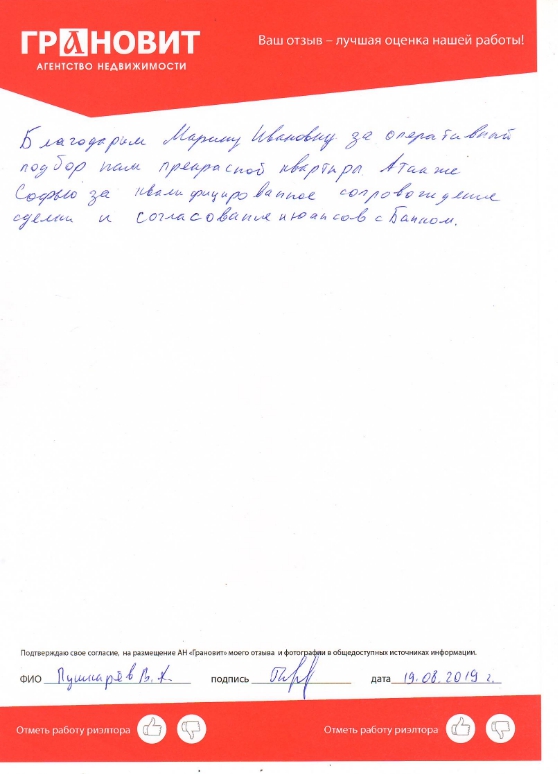 ГРАНОВИТ
АГЕНТСТВО НЕДВИЖИМОСТИ
Ваш отзыв – лучшая оценка нашей работы!
Благодарим Марину Ивановну за оперативный
подбор нам прекрасной квартиры А также
Софью за квалифицированное сопровождение
сделки и согласование нюансов с Банком.
Подтверждаю свое согласие, на размещение АН «Грановит» моего отзыва и фотографии в общедоступных источниках информации.
ФИО Пушкарёв В.К. подпись дата 19.08.2019 г.
Отметь работу риэлтора Отметь работу риэлтора